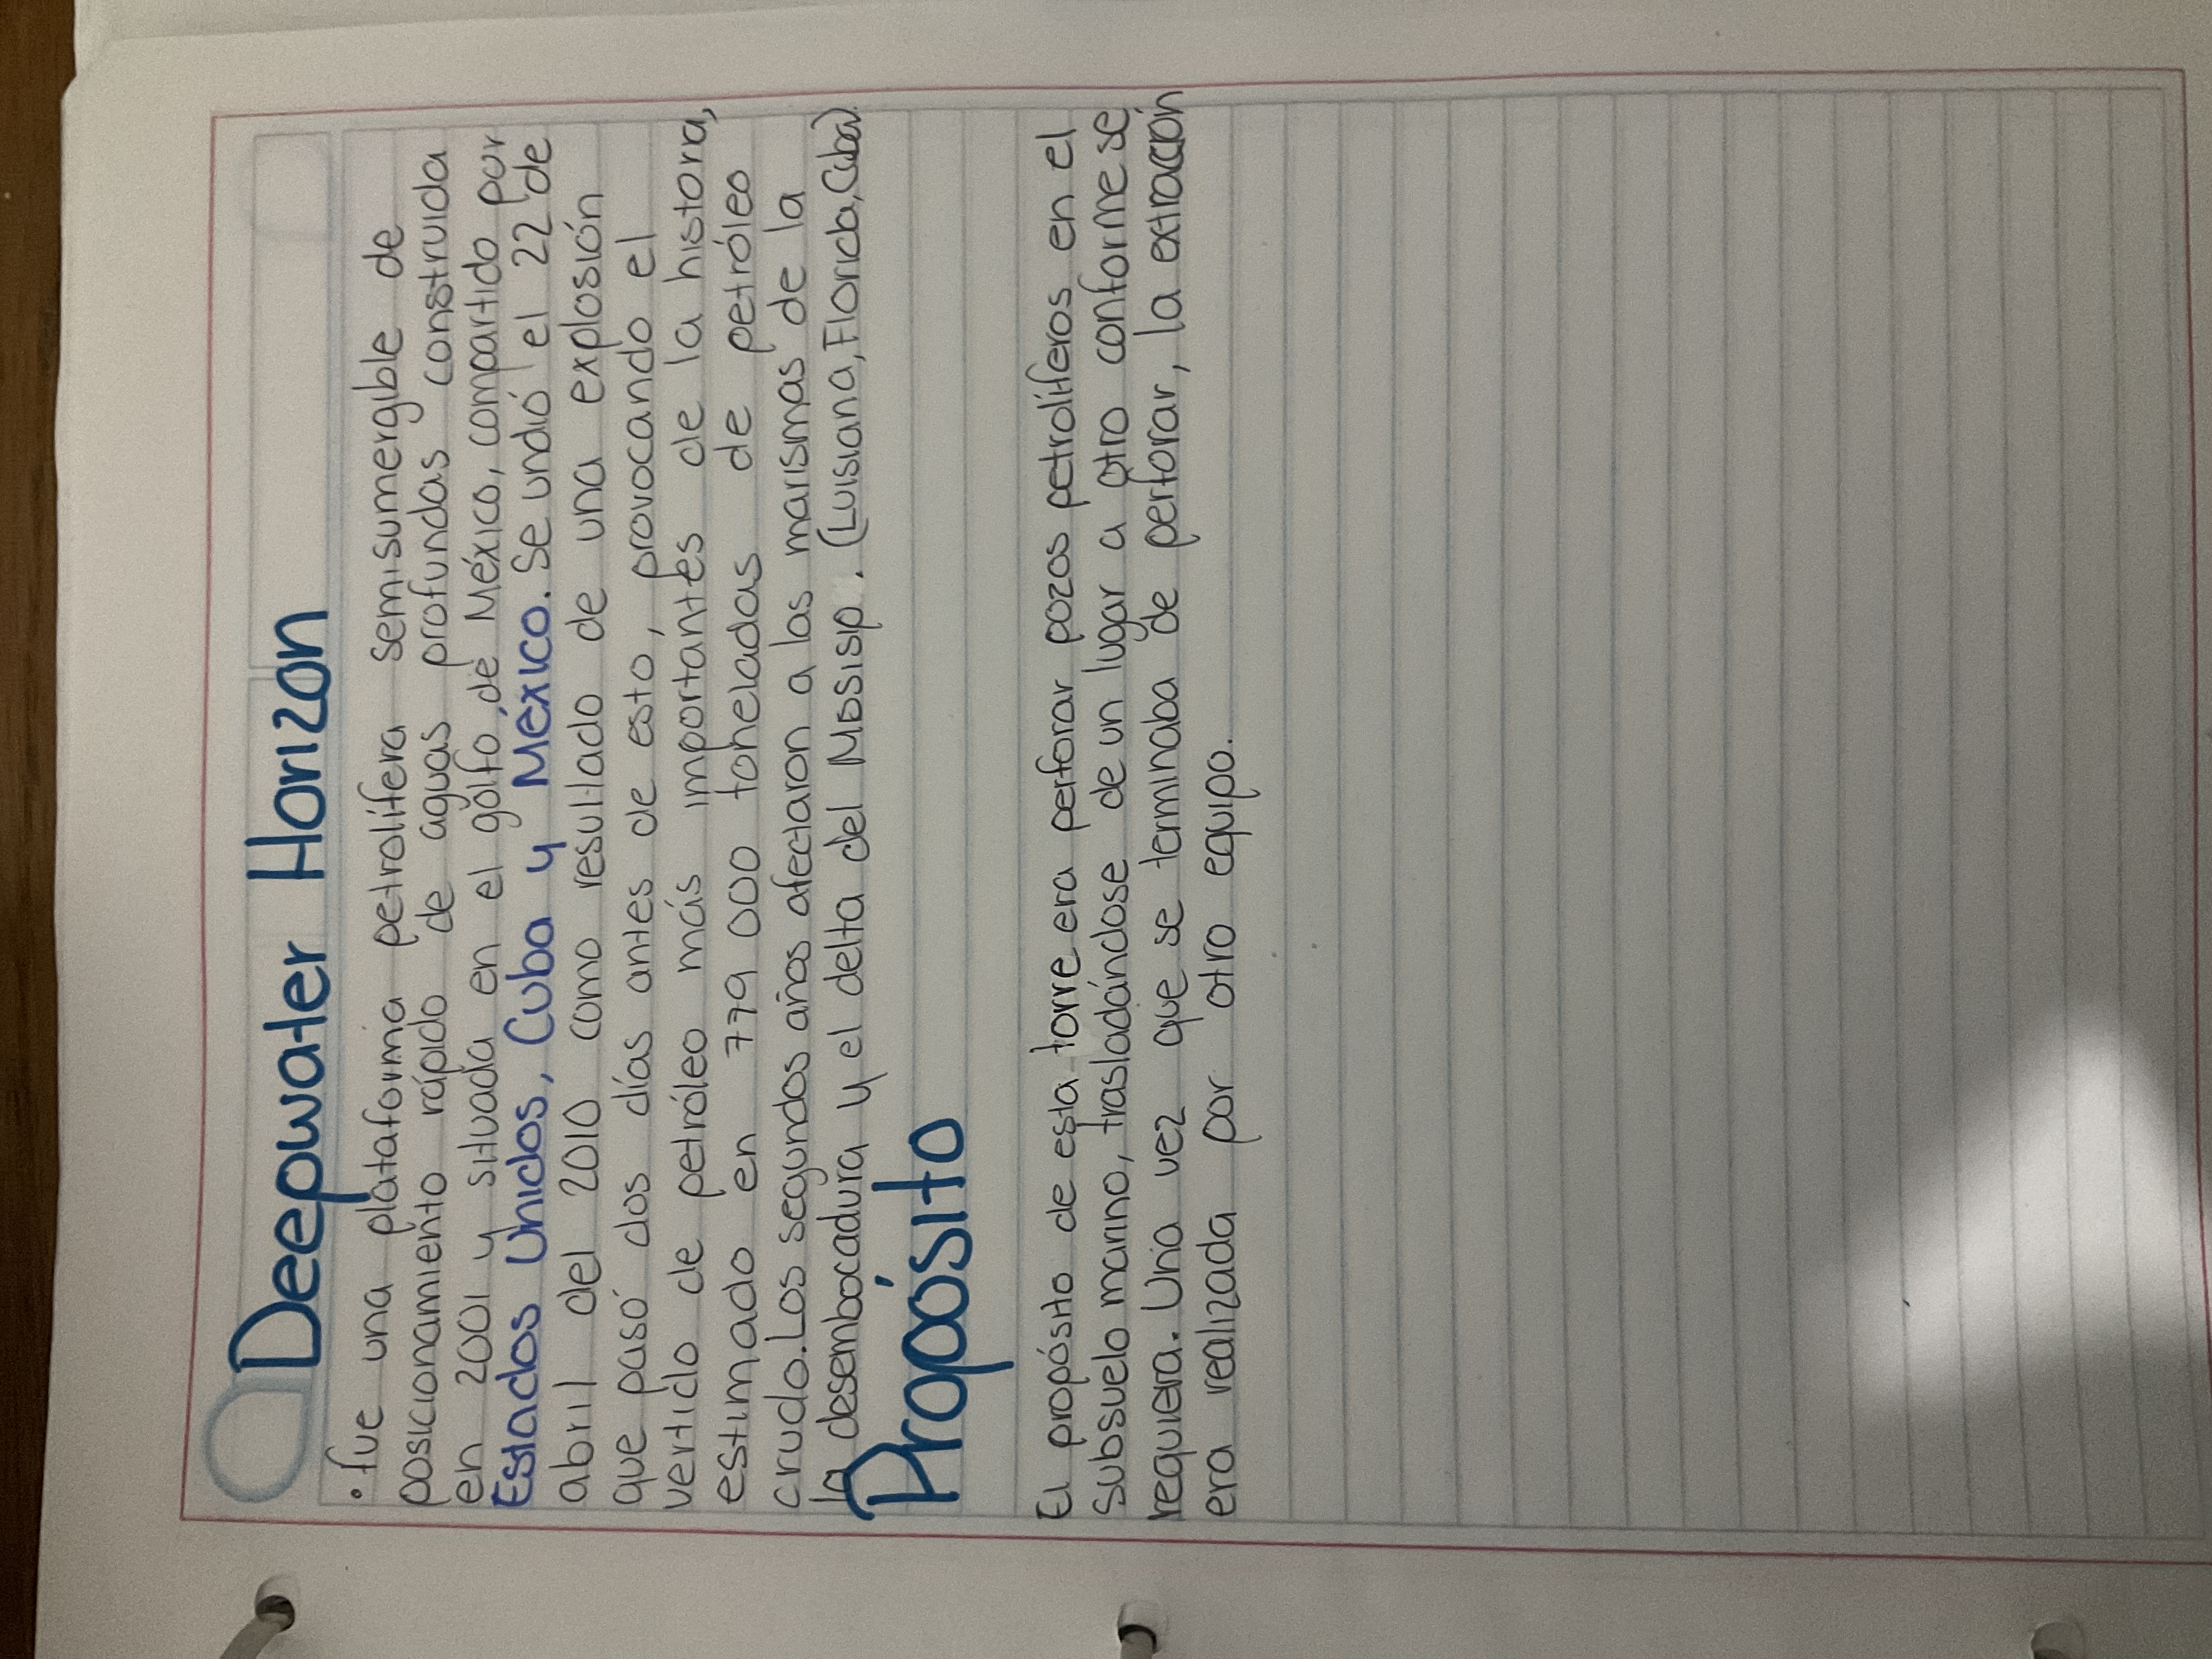 Deepwater Horizon
• fue una plataforma petrolífera semisumergible de
posicionamiento rápido de aguas profundas construida
en 2001 y situada en el golfo de México, compartido por
Estados Unidos, Cuba y México. Se undió el 22 de
abril del 2010 como resultado de una explosión
que pasó dos días antes de esto, provocando el
vertido de petróleo más importantes de la historia,
estimado en 779 000 toneladas de petróleo
crudo. Los segundos años afectaron a las marismas de la
la desembocadura y el delta del Missisip. (Luisiana, Florida, Cuba)
Propósito
El propósito de esta torre era perforar pozos petrolíferos en el
subsuelo marino, trasladándose de un lugar a otro conforme se
requiera. Una vez que se terminaba de perforar, la extracción
era realizada por otro equipo.